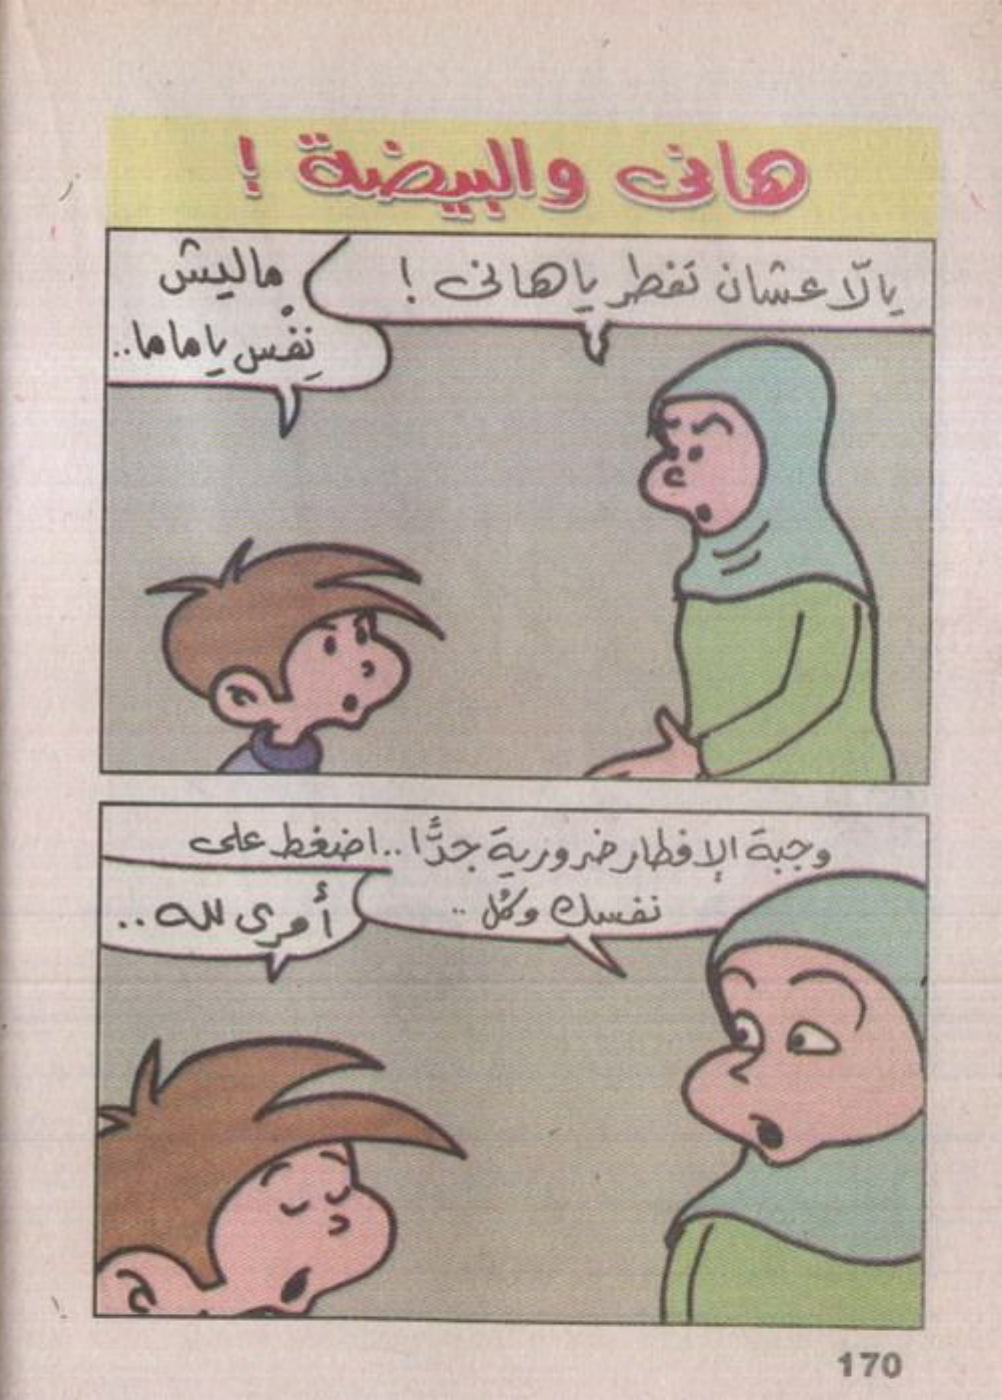 هانى والبيضة !
يالّا عشان تفطر ياهانى !
ماليش
نِفْس ياماما..
وجبة الإفطار ضرورية جدًّا.. اضغط على
نفسك وكُل ..
أمرى لله ..
170